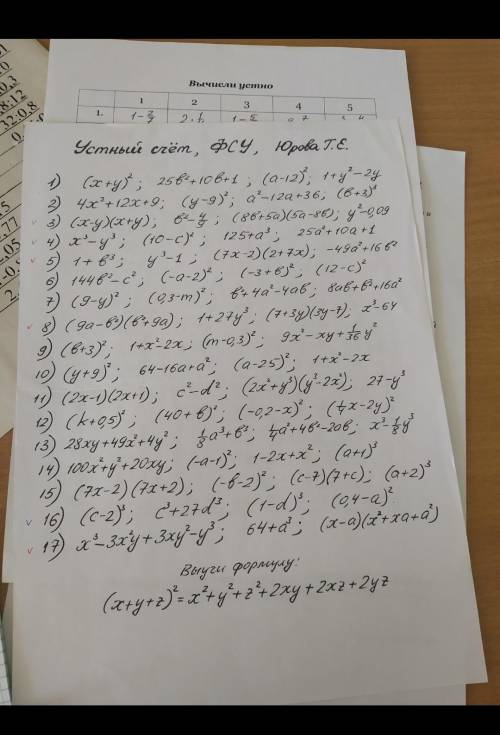 Вычисли устно
1 2 3 4 5
1.
Устный счёт, ФСУ, Юрова Т.Е.
1) (x+y)²; 25b²+10b+1; (a-12)²; 1+y²-2y
2) 4x²+12x+9; (y-9)²; a²-12a+36; (b+3)³
3) (x-y)(x+y); b²-4/9; (8b+5a)(5a-8b); y²-0,09
4) x³-y³; (10-c)²; 125+a³; 25a²+10a+1
5) 1+b³; y³-1; (7x-2)(2+7x); -49a²+16b²
6) 144b²-c²; (-a-2)²; (-3+b)²; (12-c)²
7) (9-y)²; (0,3-m)²; b²+4a²-4ab; 8ab+b²+16a²
8) (9a-b²)(b²+9a); 1+27y³; (7+3y)(3y-7); x³-64
9) (b+3)²; 1+x²-2x; (m-0,3)²; 9x²-xy+1/36y²
10) (y+9)²; 64-16a+a²; (a-25)²; 1+x²-2x
11) (2x-1)(2x+1); c²-d²; (2x²+y³)(y³-2x²); 27-y³
12) (k+0,5)²; (40+b)²; (-0,2-x)²; (1/4x-2y)²
13) 28xy+49x²+4y²; 1/8a³+b³; 1/4a²+4b²-2ab; x³-1/8y³
14) 100x²+y²+20xy; (-a-1)²; 1-2x+x²; (a+1)³
15) (7x-2)(7x+2); (-b-2)²; (c-7)(7+c); (a+2)³
16) (c-2)³; c³+27d³; (1-d)³; (0,4-a)²
17) x³-3x²y+3xy²-y³; 64+a³; (x-a)(x²+xa+a²)
Выучи формулу:
(x+y+z)²=x²+y²+z²+2xy+2xz+2yz